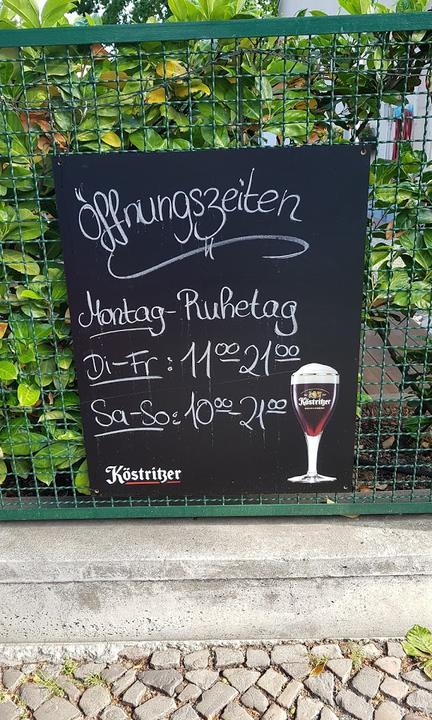 Öffnungszeiten
Montag-Ruhetag
Di-Fr: 11⁰⁰-21⁰⁰
Sa-So: 10⁰⁰-21⁰⁰
Köstritzer
Köstritzer